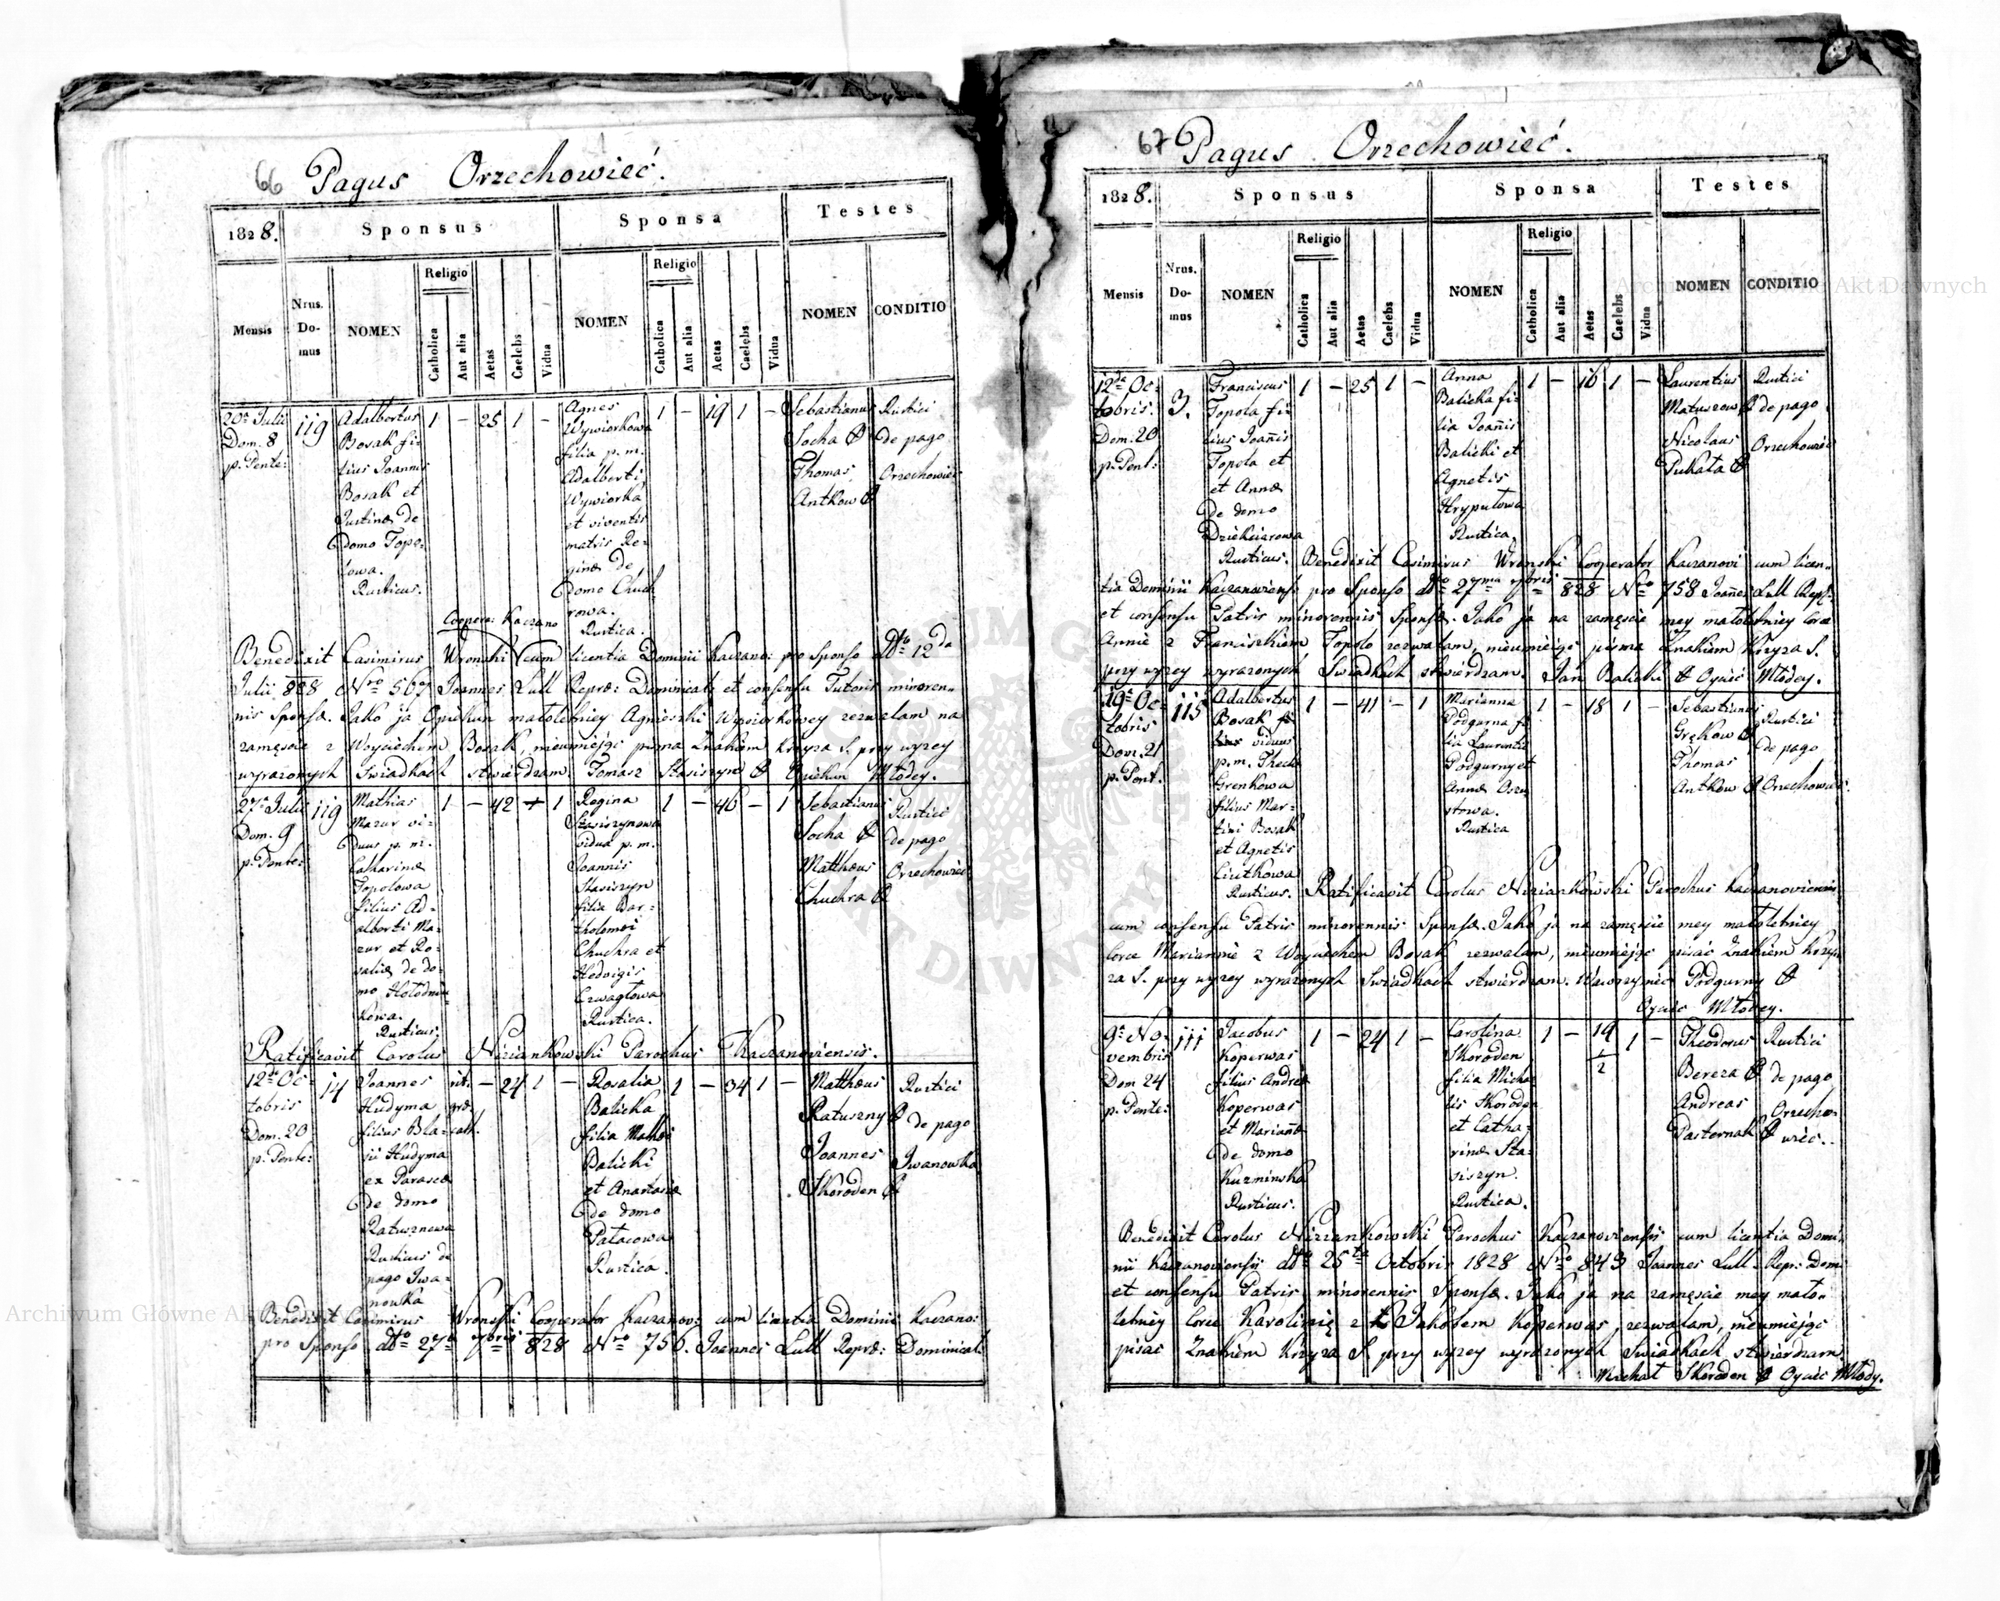 66 Pagus Orzechowieć.
1828. Sponsus Sponsa Testes
Mensis
Nrus. Domus
NOMEN
Religio
Catholica
Aut alia
Aetas
Caelebs
Vidua
NOMEN
Religio
Catholica
Aut alia
Aetas
Caelebs
Vidua
NOMEN
CONDITIO
20a Julii
Dom. 8
p. Pente:
119
Adalbertus
Bosak fi-
lius Joannis
Bosak et
Justinæ de
domo Topo-
lowa.
Rusticus.
1 – 25 1 –
Agnes
Wywiorkowa
filia p. m.
Adalberti
Wywiorka
et viventis
matris Re-
ginæ de
domo Chuch
rowa.
Rustica.
1 – 19 1 –
Sebastianus
Socha
Thomas
Antkow
Rustici
de pago
Orzechowieć
Coopera: Kaczano
Benedixit Casimirus Wronski cum licentia Dominii Kaczano: pro Sponso dto 12da
Julii 828 Nro 567 Joannes Lull Repræ: Dominicat: et consensu Tutoris minoren-
nis Sponsæ. Jako ja Opiekun małoletniey Agnieszki Wywiorkowey zezwalam na
zamęscie z Woyciechem Bosak, nieumiejąc pisma Znakiem Krzyża S. przy wyzey
wyrażonych Swiadkach stwierdzam Tomasz Stasiszyn Opiekun Młodey.
27a Julii
Dom. 9
p. Pente:
119
Mathias
Mazur vi-
duus p. m.
Catharinæ
Topolowa
filius Ad-
alberti Ma-
zur et Ro-
saliæ de do-
mo Hołodniu-
kowa.
Rusticus.
1 – 42 – 1
Regina
Stasiszynowa
vidua p. m.
Joannis
Stasiszyn
filia Bar-
tholomei
Chuchra et
Hedvigis
Czwagłowa
Rustica.
1 – 46 – 1
Sebastianus
Socha
Matthæus
Chuchra
Rustici
de pago
Orzechowieć
Ratificavit Carolus Niziankowski Parochus Kaczanoviensis.
12da Oc-
tobris
Dom. 20
p. Pente:
14
Joannes
Hudyma
filius Bla-
sii Hudyma
ex Parasca
de domo
Ratusznowa
Rusticus de
pago Iwa-
nowka
rit.
græ.
cath.
– 24 1 –
Rosalia
Balicka
filia Mathei
Balicki
et Anastasiæ
de domo
Pałacowa
Rustica.
1 – 34 1 –
Matthæus
Ratuszny
Joannes
Skoroden
Rustici
de pago
Iwanowka
Benedixit Casimirus Wronski Cooperator Kaczanov: cum licentia Dominii Kaczano:
pro Sponso dto 27a 7bris 828 Nro 756. Joannes Lull Repræ: Dominicat:
67 Pagus Orzechowieć.
1828. Sponsus Sponsa Testes
Mensis
Nrus. Domus
NOMEN
Religio
Catholica
Aut alia
Aetas
Caelebs
Vidua
NOMEN
Religio
Catholica
Aut alia
Aetas
Caelebs
Vidua
NOMEN
CONDITIO
12da Oc-
tobris.
Dom. 20
p. Pent:
3.
Franciscus
Topola fi-
lius Joañis
Topola et
et Annæ
de domo
Dziekciarowa
Rusticus.
1 – 25 1 –
Anna
Balicka fi-
lia Joañis
Balicki et
Agnetis
Hryputowa
Rustica.
1 – 16 1 –
Laurentius
Matuszow
Nicolaus
Pukała
Rustici
de pago
Orzechowieć
Benedixit Casimirus Wronski Cooperator Kaczanovi cum licen-
tia Dominii Kaczanoviensi pro Sponso dto 27ma 7bris 828 Nro 758 Joañes Lull Repr:
et consensu Patris minorennis Sponsæ. Jako ja na zamęscie mey małoletniey Corce
Annie z Franciszkiem Topolo zezwalam, nieumiejąc pisma Znakiem Krzyza S.
przy wyzey wyrazonych Swiadkach stwierdzam. Jan Balicki Oyciec Młodey.
19a Oc-
tobris
Dom. 21
p. Pent.
115
Adalbertus
Bosak
viduus
p. m. Theclæ
Grenkowa
filius Mar-
tini Bosak
et Agnetis
Ciutkowa
Rusticus.
1 – 41 – 1
Marianna
Podgurna fi-
lia Laurentii
Podgurny et
Annæ Orzu
stowa.
Rustica
1 – 18 1 –
Sebastianus
Grękow
Thomas
Antkow
Rustici
de pago
Orzechowieć.
Ratificavit Carolus Niziankowski Parochus Kaczanoviensis
cum consensu Patris minorennis Sponsæ. Jako ja na zamęscie mey małoletniey
Corce Mariannie z Woyciechem Bosak zezwalam, nieumiejąc pisać Znakiem Krzy-
za S. przy wyzey wyrazonych Swiadkach stwierdzam. Wawrzyniec Podgurny
Oyciec Młodey.
9a No-
vembris
Dom 24
p. Pente:
111
Jacobus
Koperwas
filius Andreæ
Koperwas
et Mariañæ
de domo
Kuzminska
Rusticus.
1 – 24 1 –
Carolina
Skoroden
filia Micha-
lis Skoroden
et Catha-
rinæ Sta-
siszyn.
Rustica.
1 – 19 1/2 1 –
Theodorus
Bereza
Andreas
Pasternak
Rustici
de pago
Orzecho-
wieć.
Benedixit Carolus Niziankowski Parochus Kaczanoviensis cum licentia Domi-
nii Kaczanoviensis dto 25ta Octobris 1828 Nro 843 Joannes Lull. Repr: Dom:
et consensu Patris minorennis Sponsæ. Jako ja na zamęscie mey mało-
letniey Corce Karolinie z Jakobem Koperwas, zezwalam, nieumiejąc
pisać Znakiem Krzyza S. przy wyzey wyrazonych Swiadkach stwierdzam
Michał Skoroden Oyciec Młody.
Archiwum Główne Akt Dawnych